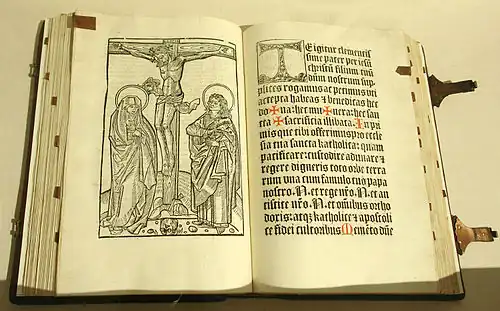 Te igitur clementis
sime pater per iesū
christū filium tuū
dūm nostrum sup
plices rogamus ac petimus uti
accepta habeas ⁊ benedicas hec
do✠na: hec mu✠nera: hec san
cta ✠ sacrificia illibata. In pri
mis que tibi offerimus pro eccle
sia tua sancta katholica: quam
pacificare: custodire adunare ⁊
regere digneris toto orbe terra
rum una cum famulo tuo papa
nostro. N. et rege nr̄o. N. et an
tistite nr̄o. N. et om̄ibus ortho
doxis: atqꝫ katholice ⁊ apostoli
ce fidei cultoribus Memēto dn̄e